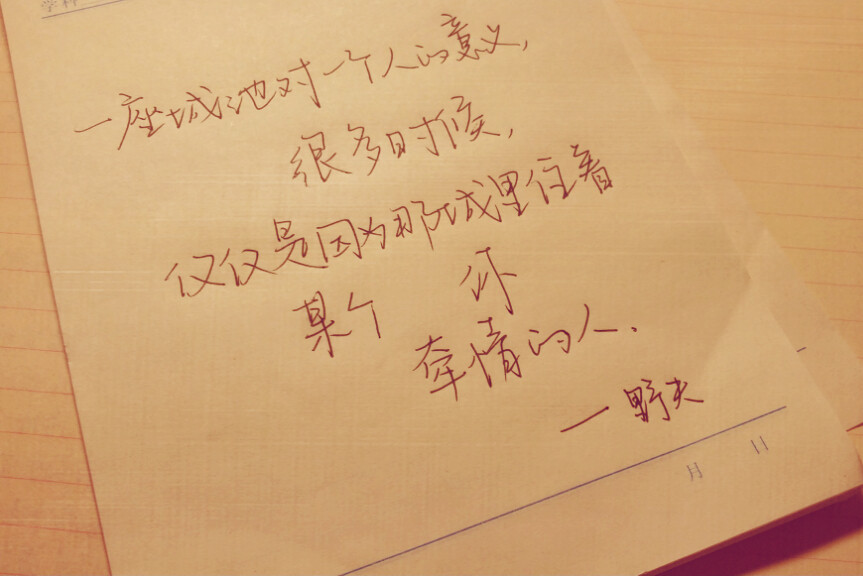 学科
一座城池对一个人的意义,
很多时候,
仅仅是因为那城里住着
某个 你
牵情的人.
—野夫
月 日